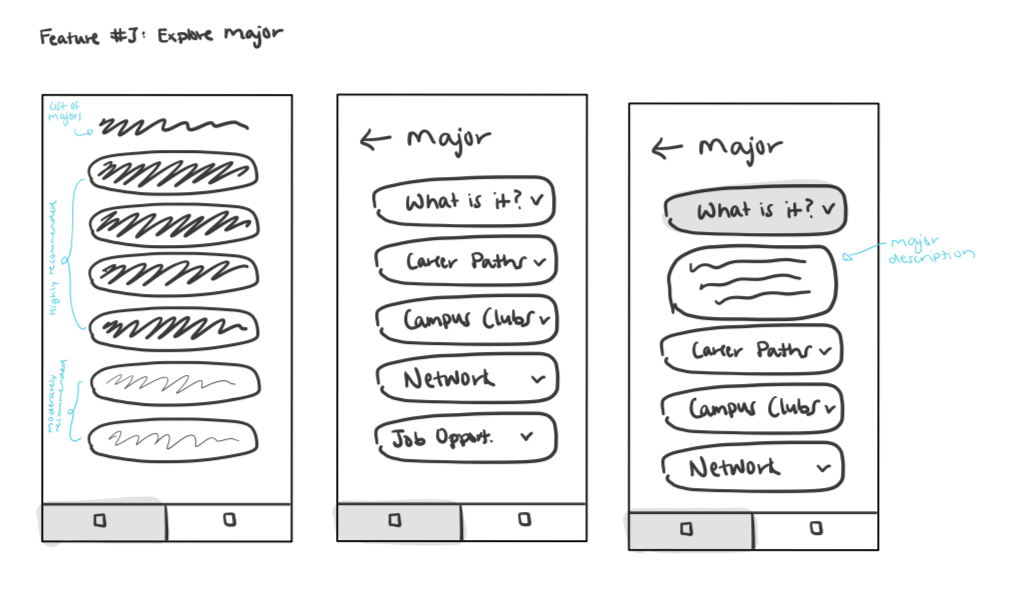 Feature #3: Explore major
List of
majors
Highly recommended
moderately
recommended
← major
What is it?
Career Paths
Campus Clubs
Network
Job Opport.
← major
What is it?
major
description
Career Paths
Campus Clubs
Network